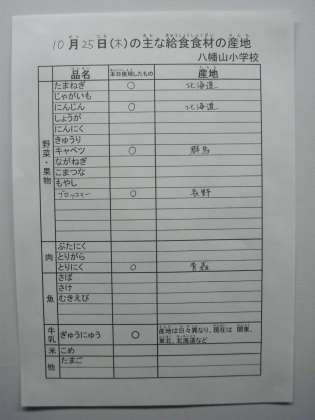 10月25日(木)の主な給食食材の産地
八幡山小学校
品名 本日使用したもの 産地
野菜・果物
たまねぎ ○ 北海道
じゃがいも
にんじん ○ 北海道
しょうが
にんにく
きゅうり
キャベツ ○ 群馬
ながねぎ
こまつな
もやし
ブロッコリー ○ 長野
肉
ぶたにく
とりがら
とりにく ○ 青森
魚
さば
さけ
むきえび
牛乳 ぎゅうにゅう ○ 産地は日々異なり、現在は 関東、
東北、北海道など
米 こめ
他 たまご